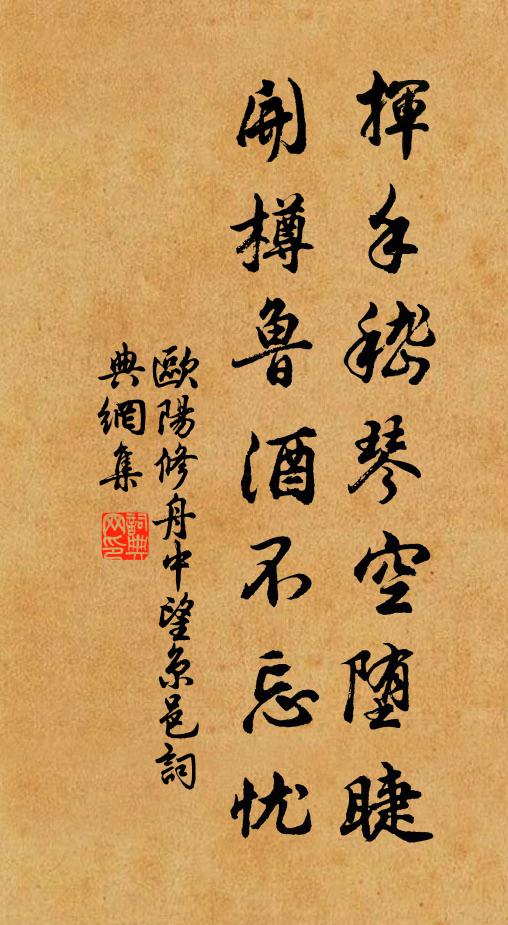 揮手嵇琴空堕睫
開樽魯酒不忘忧
歐陽修舟中望京邑詞
典網集
詞典
网印